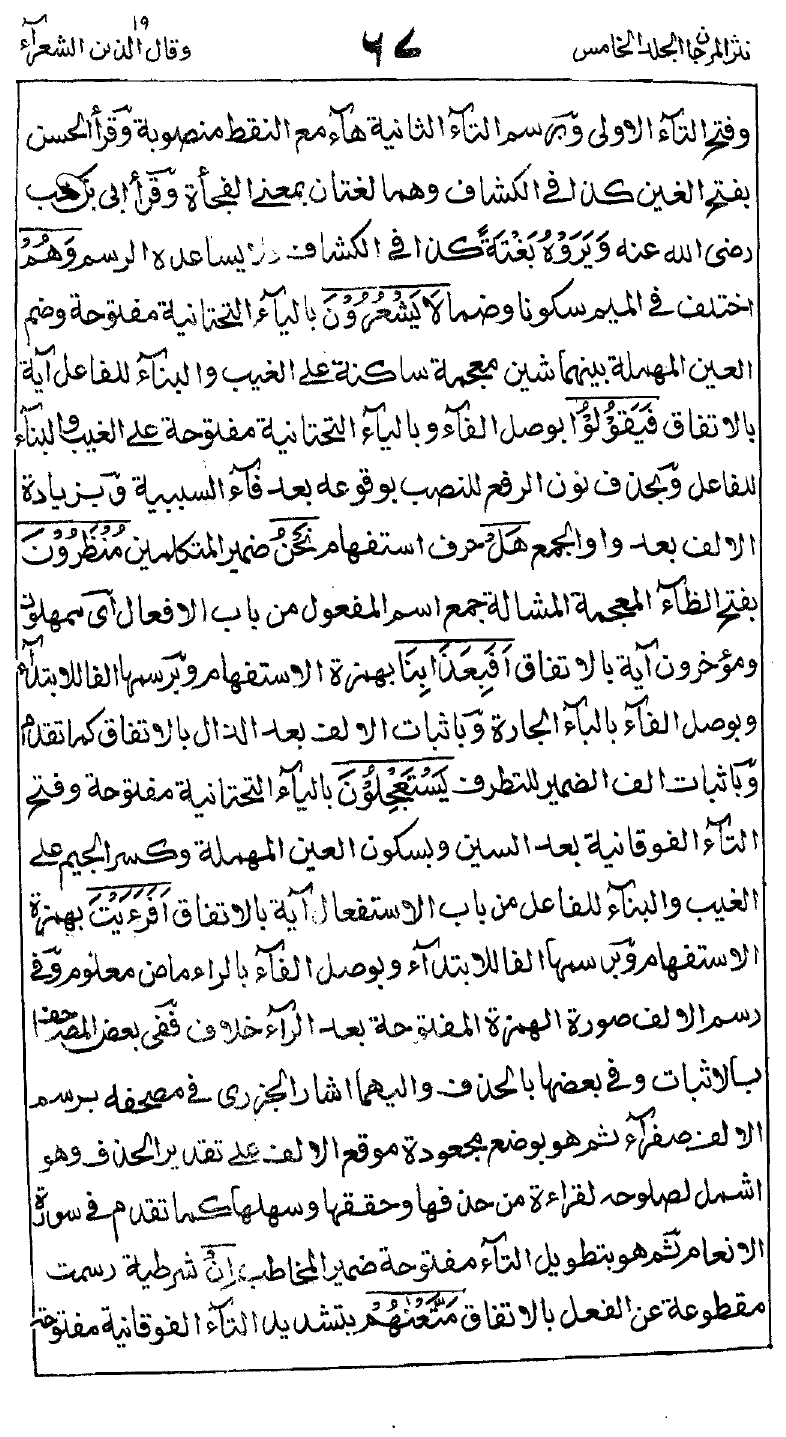 نثر المرجان المجلد الخامس ٦٧ وقال الذين ١٩ الشعرآء
وفتح التآء الاولى وبرسم التآء الثانية هآء مع النقط منصوبة وقرأ الحسن
بفتح الغين كذا فى الكشاف وهما لغتان بمعنى الفجأة وقرأ ابى بن كعب
رضى الله عنه وَيَرَوْهُ بَغْتَةً كذا فى الكشاف ولا يساعده الرسم وَهُمْ
اختلف فى الميم سكونا وضما لَا يَشْعُرُوْنَ باليآء التحتانية مفتوحة وضم
العين المهملة بينهما شين معجمة ساكنة على الغيب والبنآء للفاعل آية
بالاتفاق فَيَقُوْلُوْا بوصل الفآء وباليآء التحتانية مفتوحة على الغيب والبنآء
للفاعل وبحذف نون الرفع للنصب بوقوعه بعد فآء السببية وبزيادة
الالف بعد واو الجمع هَلْ حرف استفهام نَحْنُ ضمير المتكلمين مُنْظَرُوْنَ
بفتح الظآء المعجمة المشالة جمع اسم المفعول من باب الافعال اى ممهلون
ومؤخرون آية بالاتفاق اَفَبِعَذَابِنَا بهمزة الاستفهام وبرسمها الفا للابتدآء
وبوصل الفآء بالبآء الجارة وباثبات الالف بعد الذال بالاتفاق كما تقدم
وباثبات الف الضمير للتطرف يَسْتَعْجِلُوْنَ باليآء التحتانية مفتوحة وفتح
التآء الفوقانية بعد السين وبسكون العين المهملة وكسر الجيم على
الغيب والبنآء للفاعل من باب الاستفعال آية بالاتفاق اَفَرَءَيْتَ بهمزة
الاستفهام وبرسمها الفا للابتدآء وبوصل الفآء بالراء ماض معلوم وفى
رسم الالف صورة الهمزة المفتوحة بعد الرآء خلاف ففى بعض المصاحف
بالاثبات وفى بعضها بالحذف واليهما اشار الجزرى فى مصحفه برسم
الالف صفرآء ثم هو بوضع مجعودة موقع الالف على تقدير الحذف وهو
اشمل لصلوحه لقراءة من حذفها وحققها وسهلها كما تقدم فى سورة
الانعام ثم هو بتطويل التآء مفتوحة ضمير المخاطب اِنْ شرطية رسمت
مقطوعة عن الفعل بالاتفاق مَتَّعْنٰهُمْ بتشديد التآء الفوقانية مفتوحة